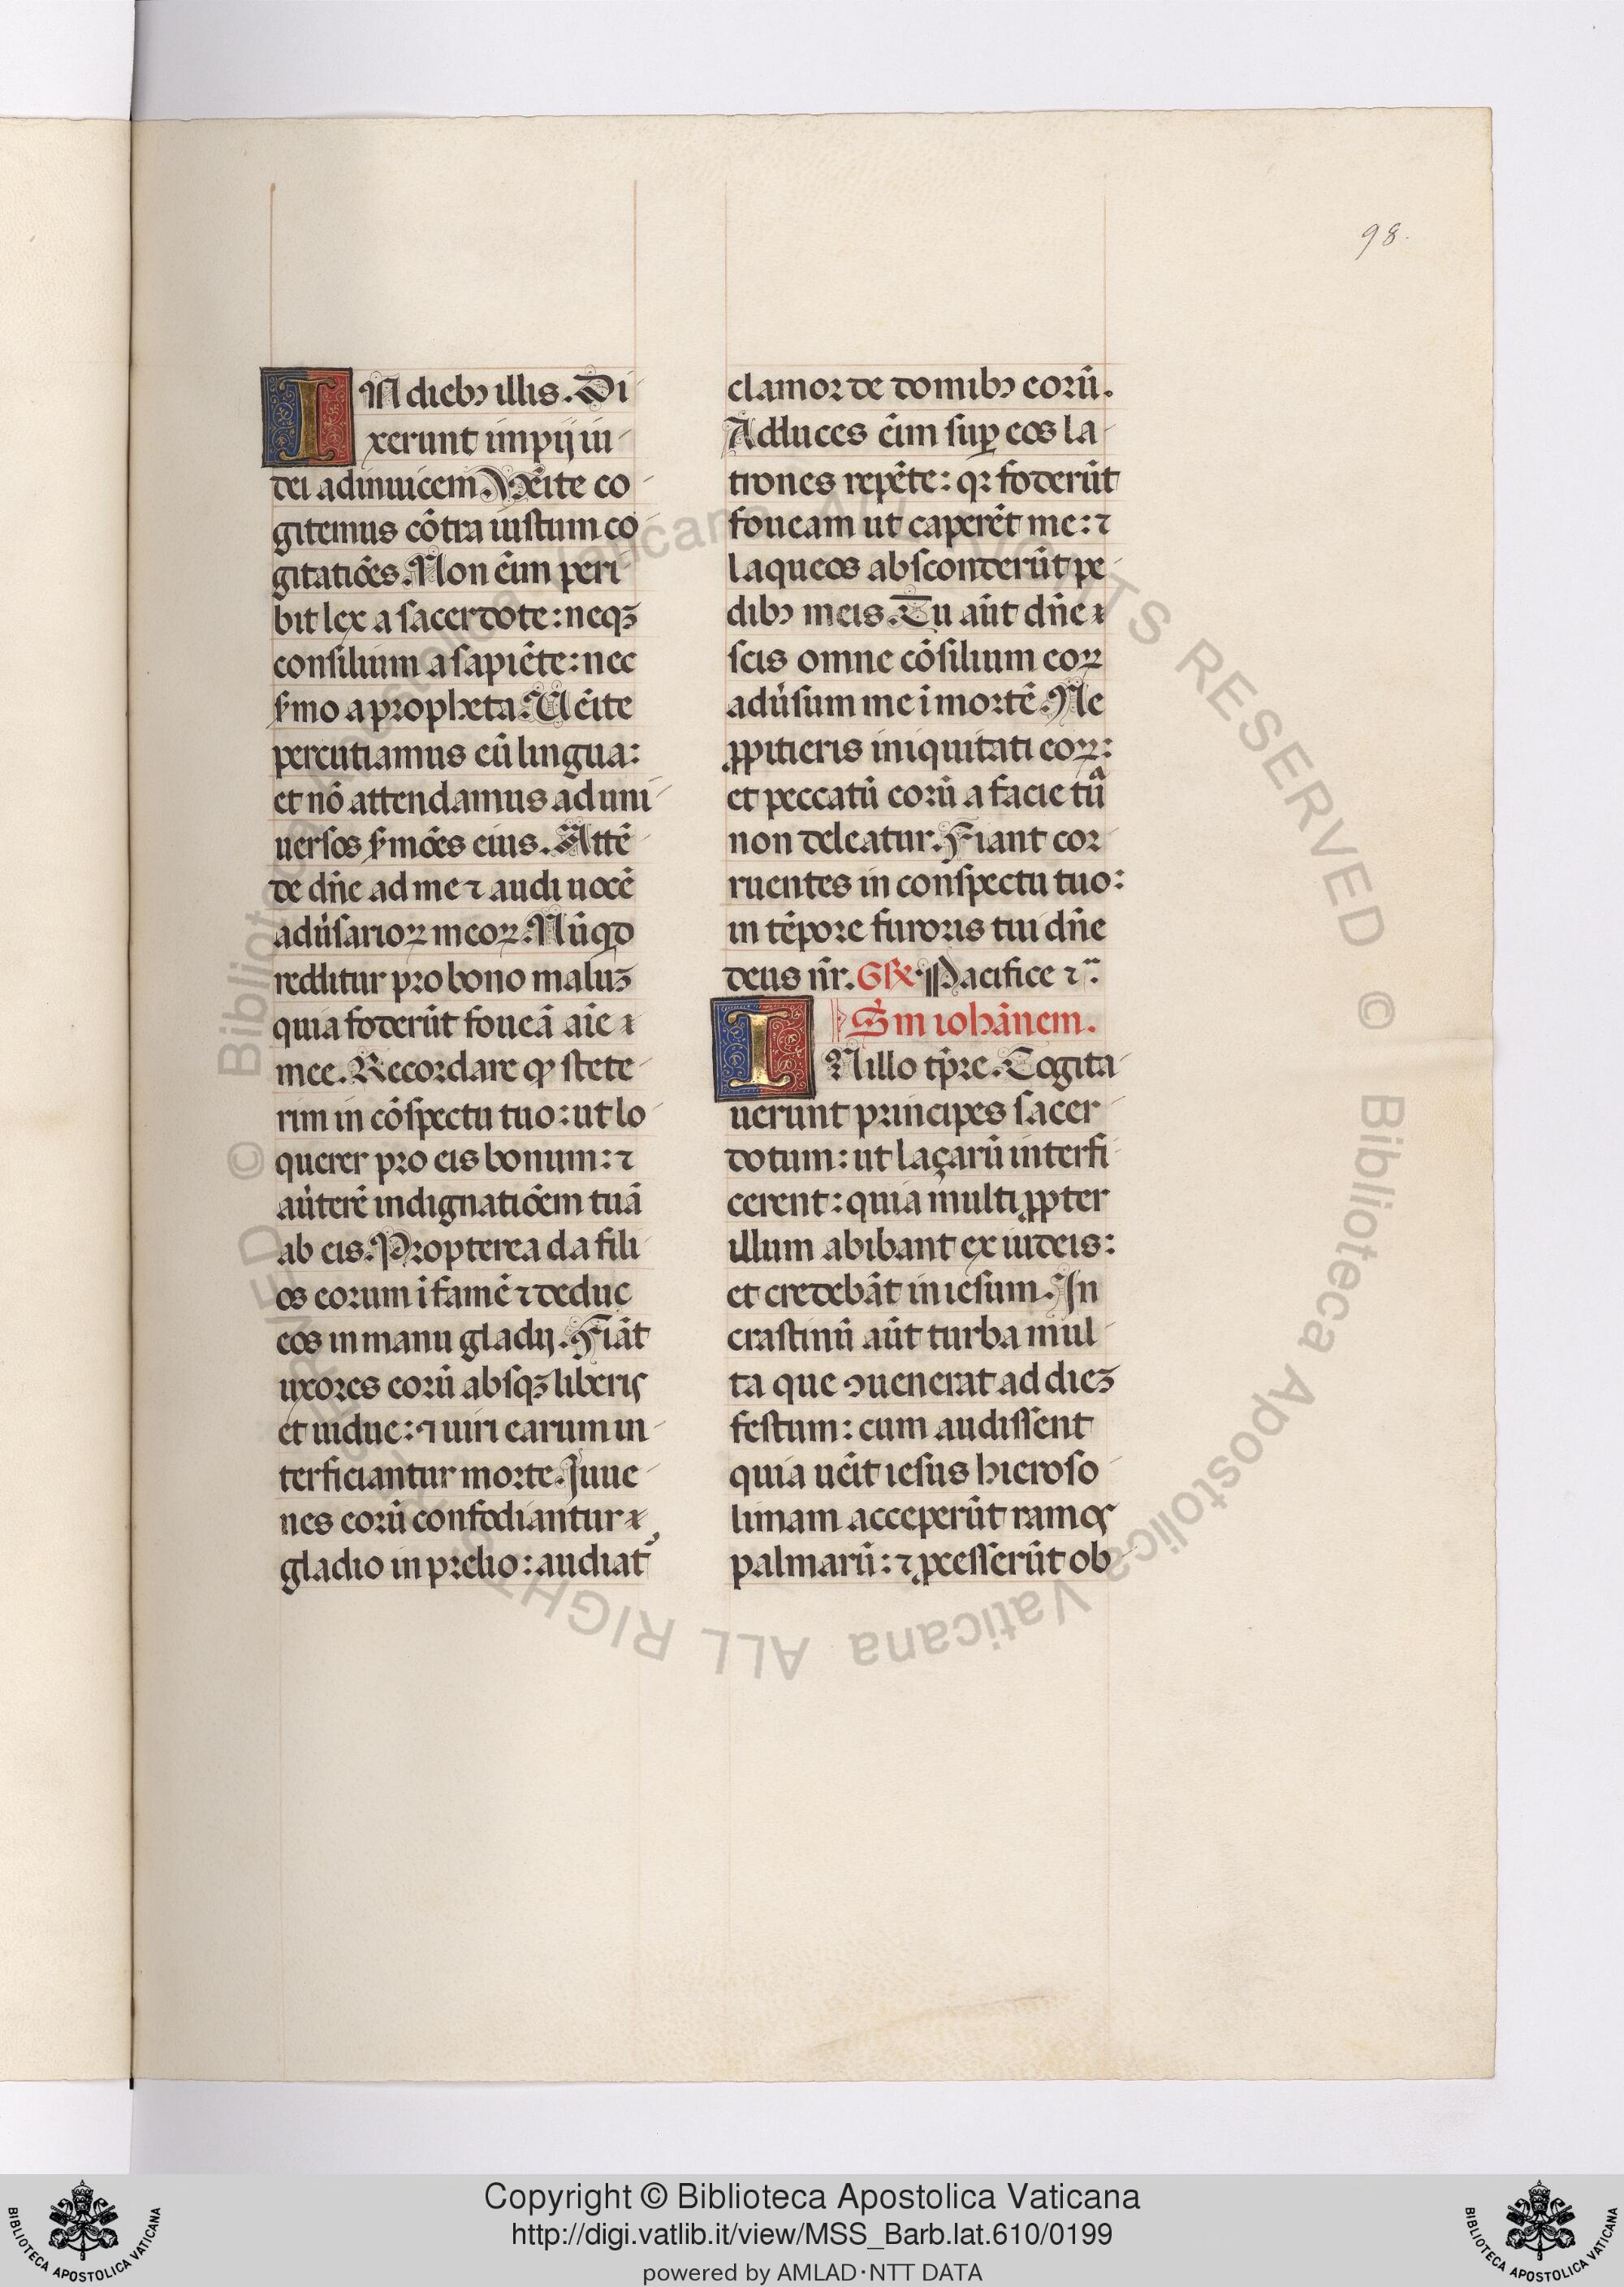 98.
IN dieb₉ illis. Di
xerunt impij iu
dei adinuicem. Vēite co
gitemus cōtra iustum co
gitatiōes. Non ēim peri
bit lex a sacerdote: neqꝫ
consilium a sapiēte: nec
ẜmo a propheta. Uēite
percutiamus eū lingua:
et nō attendamus ad uni
uersos ẜmōes eius. Attē
de dn̄e ad me ⁊ audi uocē
adūsarioꝝ meoꝝ. Nūqd
redditur pro bono maluꝫ
quia foderūt foueā aīe
mee. Recordare ꝙ stete
rim in cōspectu tuo: ut lo
querer pro eis bonum: ⁊
aūterē indignatiōem tuā
ab eis. Propterea da fili
os eorum ī famē ⁊ deduc
eos in manu gladij. Fiāt
uxores eorū absqꝫ liberis
et uidue: ⁊ uiri earum in
terficiantur morte. Juue
nes eorū confodiantur
gladio in prelio: audiat᷑
clamor de domib₉ eorū.
Adduces ēim suꝑ eos la
trones repēte: qꝛ foderūt
foueam ut caperēt me: ⁊
laqueos absconderūt pe
dib₉ meis. Tu aūt dn̄e
scis omne cōsilium eoꝝ
adūsum me ī mortē. Ne
ꝓpitieris iniquitati eoꝝ:
et peccatū eorū a facie tūᵃ
non deleatur. Fiant cor
ruentes in conspectu tuo:
in tēpore furoris tui dn̄e
deus nr̄. Gꝶ. Pacifice ⁊ᷓ.
S̄m iohānem.
IN illo tp̄re. Cogita
uerunt principes sacer
dotum: ut laçarū interfi
cerent: quia multi ꝓpter
illum abibant ex iudeis:
et credebāt in iesum. In
crastinū aūt turba mul
ta que ↄuenerat ad dieꝫ
festum: cum audissent
quia uēit iesus hieroso
limam acceperūt ramos
palmarū: ⁊ ꝓcesserūt ob
© Biblioteca Apostolica Vaticana ALL RIGHTS RESERVED
Copyright © Biblioteca Apostolica Vaticana
http://digi.vatlib.it/view/MSS_Barb.lat.610/0199
powered by AMLAD·NTT DATA
BIBLIOTECA APOSTOLICA VATICANA
BIBLIOTECA APOSTOLICA VATICANA